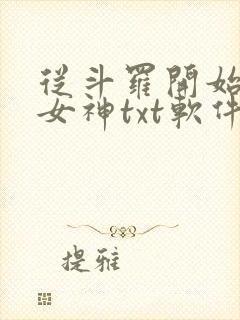 從斗羅開始
女神txt軟件
提雅